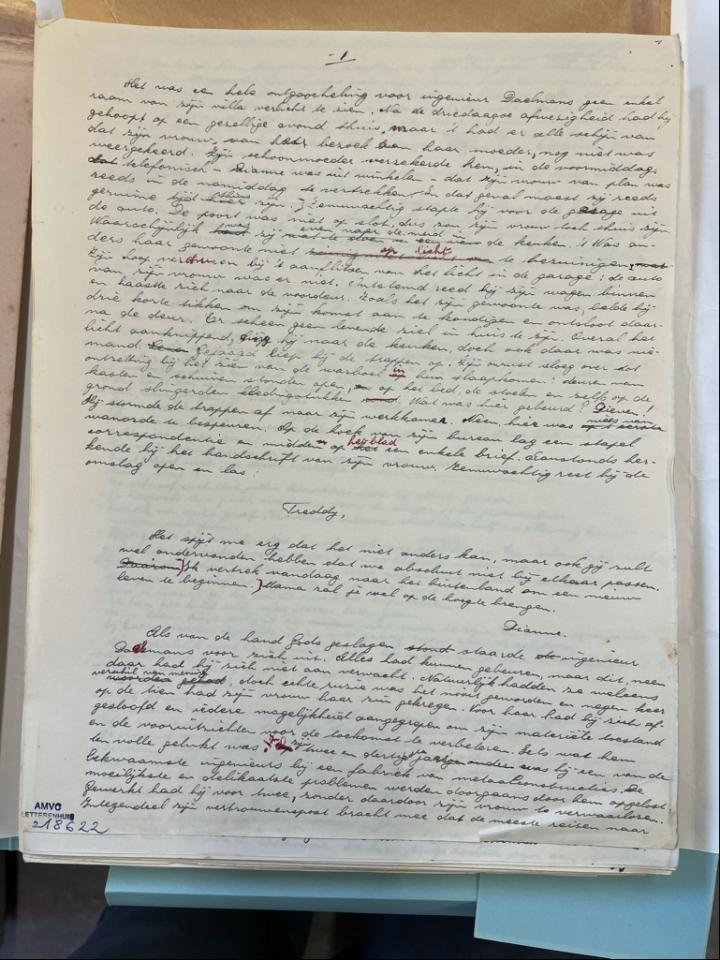 - 1
Het was een hele ontgoocheling voor ingenieur Daelmans geen enkel
raam van zijn villa verlicht te zien. Na de driedaagse afwezigheid had hij
gehoopt op een gezellige avond thuis, maar 't had er alle schijn van
dat zijn vrouw, van haar bezoek aan haar moeder, nog niet was
weergekeerd. Zijn schoonmoeder verzekerde hen, in de voormiddag,
dat telefonisch - Dianne was uit winkelen - dat zijn vrouw van plan was
reeds in de namiddag te vertrekken. In dat geval moest zij reeds
geruime tijd thuis zijn. ] Zenuwachtig stapte hij voor de garage uit
de auto. De poort was niet op slot, dus zou zijn vrouw toch thuis zijn
Waarschijnlijk had zij wat te doen in de keuken. 't Was an-
ders haar gewoonte niet op licht te bezuinigen, wat
Zijn hoop verdween bij 't aanflitsen van het licht in de garage: de auto
van zijn vrouw was er niet. Ontstemd reed hij zijn wagen binnen
en haastte zich naar de voordeur. Zoals het zijn gewoonte was, belde hij
drie korte tikken om zijn komst aan te kondigen en ontsloot daar-
na de deur. Er scheen geen levende ziel in huis te zijn. Overal het
licht aanknippend, ging hij naar de keuken, doch ook daar was nie-
mand. Gejaagd liep hij de trappen op. Zijn onrust sloeg over tot
ontzetting bij het zien van de warboel in hun slaapkamer: deuren van
kasten en schuiven stonden open, en op het bed, de stoelen en zelfs op de
grond slingerden kledingstukken. Wat was hier gebeurd? Dieven!
Hij stormde de trappen af naar zijn werkkamer. Neen, hier was niets van
wanorde te bespeuren. Op de hoek van zijn bureau lag een stapel
correspondentie en midden op het blad een enkele brief. Aanstonds her-
kende hij het handschrift van zijn vrouw. Zenuwachtig reet hij de
omslag open en las:
Freddy,
Het spijt me erg dat het niet anders kan, maar ook gij zult
wel ondervonden hebben dat we absoluut niet bij elkaar passen.
Daarom ] Ik vertrek vandaag naar het buitenland om een nieuw
leven te beginnen. ] Mama zal je wel op de hoogte brengen.
Dianne.
Als van de hand Gods geslagen stond staarde de ingenieur
Daelmans voor zich uit. Alles had kunnen gebeuren, maar dit, neen
daar had hij zich niet aan verwacht. Natuurlijk hadden ze weleens
verschil van mening
woorden gehad, doch echte ruzie was het nooit geworden en negen keer
op de tien had zijn vrouw haar zin gekregen. Voor haar had hij zich af-
gesloofd en iedere mogelijkheid aangegrepen om zijn materiële toestand
en de vooruitzichten voor de toekomst te verbeteren. Iets wat hem
ten volle gelukt was. twee en dertig was hij een van de
bekwaamste ingenieurs bij een fabriek van metaalconstructies. De
moeilijkste en delikaatste problemen werden doorgaans door hem opgelost.
Gewerkt had hij voor twee, zonder daardoor zijn vrouw te verwaarlozen.
Integendeel zijn vertrouwenspost bracht mee dat de meeste reizen naar
AMVC
LETTERENHUIS
218622